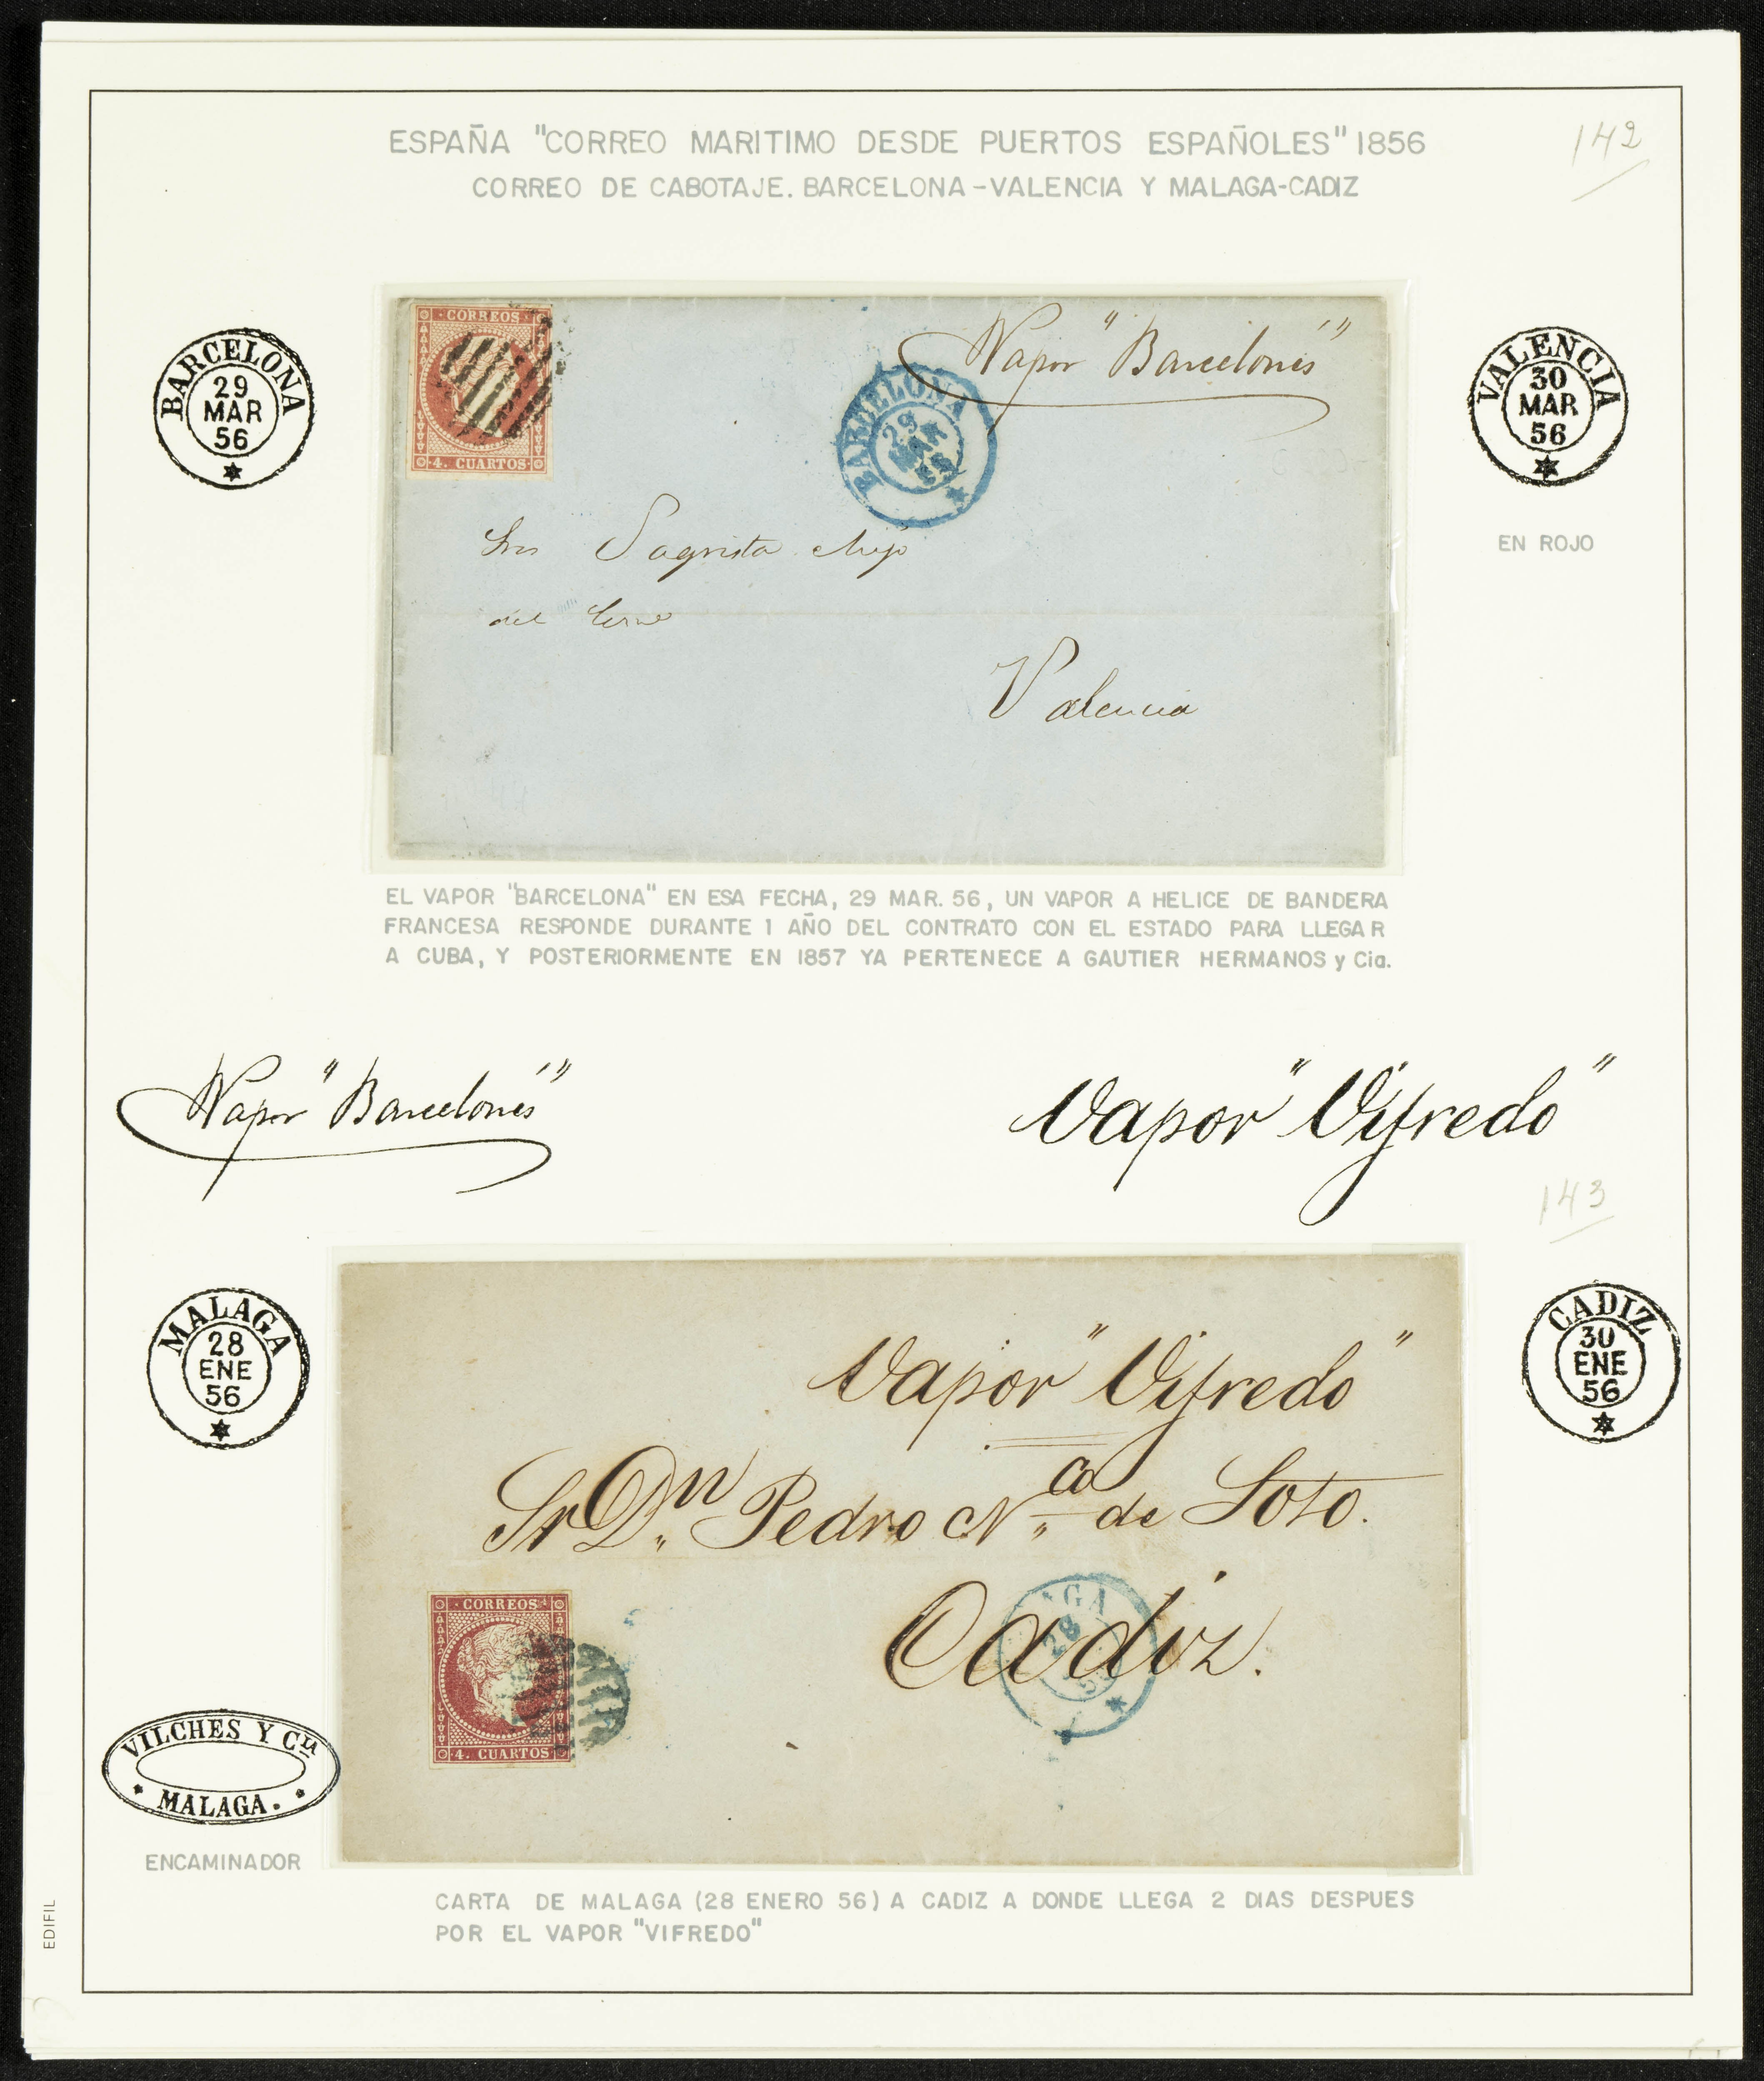 ESPAÑA "CORREO MARITIMO DESDE PUERTOS ESPAÑOLES" 1856
142
CORREO DE CABOTAJE. BARCELONA-VALENCIA Y MALAGA-CADIZ
BARCELONA
29
MAR
56
CORREOS
4. CUARTOS
Vapor "Barcelonés"
BARCELONA
29
MAR
56
VALENCIA
30
MAR
56
EN ROJO
Sres Sagrista
del
Valencia
EL VAPOR "BARCELONA" EN ESA FECHA, 29 MAR. 56, UN VAPOR A HELICE DE BANDERA
FRANCESA RESPONDE DURANTE 1 AÑO DEL CONTRATO CON EL ESTADO PARA LLEGAR
A CUBA, Y POSTERIORMENTE EN 1857 YA PERTENECE A GAUTIER HERMANOS y Cia.
Vapor "Barcelonés"
Vapor "Vifredo"
143
MALAGA
28
ENE
56
CADIZ
30
ENE
56
Vapor "Vifredo"
Sr Dn Pedro N.ª de Soto.
Cadiz.
AGA
28
56
CORREOS
4. CUARTOS
VILCHES Y Cia
MALAGA.
ENCAMINADOR
CARTA DE MALAGA (28 ENERO 56) A CADIZ A DONDE LLEGA 2 DIAS DESPUES
POR EL VAPOR "VIFREDO"
EDIFIL